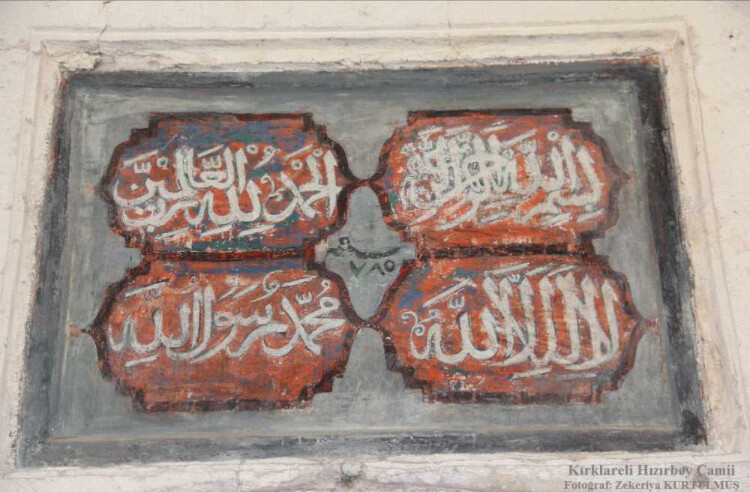 بسم الله الرحمن الرحيم
الحمد لله رب العالمين
سنه
٧٨٥
لا اله الا الله
محمد رسول الله
Kırklareli Hızırbey Camii
Fotoğraf: Zekeriya KURTULMUŞ